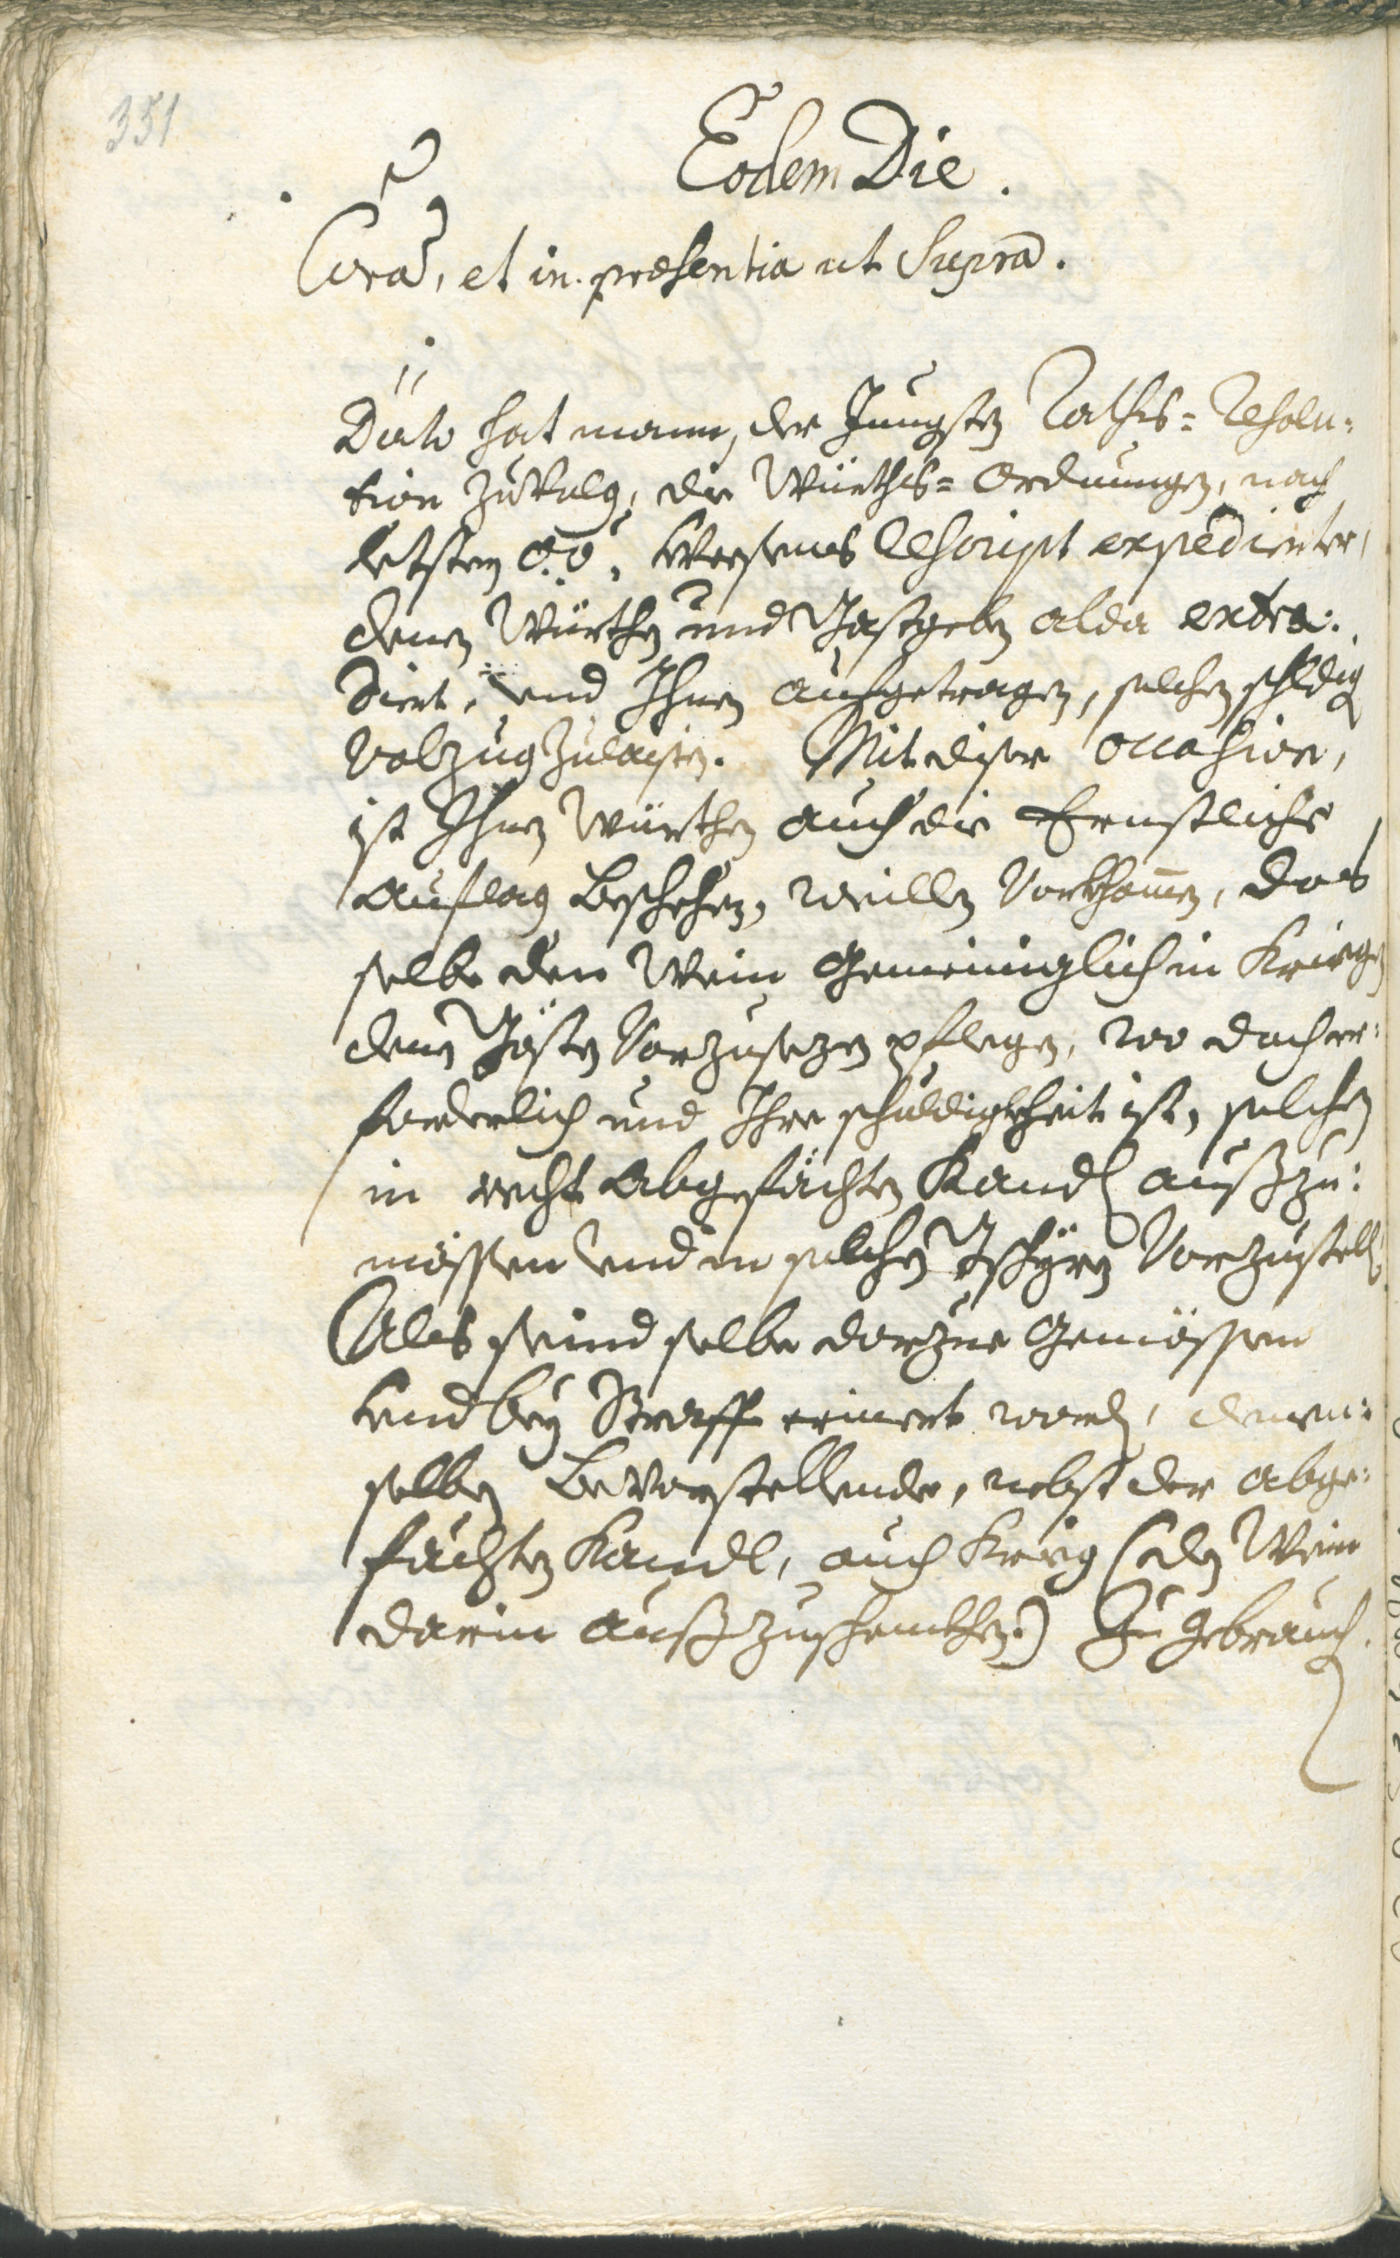 351
Eodem Die.
Corã, et in præsentia ut Supra.
Dato hat mann, der Jüngsten Raths=Resolu:
tion zuvolg, die Würths=Ordnungen, nach
letsten O:Ö: Weesens Rescript expedierter,
denen Würthen und Gastgeben alda extra:
diert, und Ihnen aufgetragen, solchen schuldig
Volzug zulaisten. Mit diser occasion,
ist Ihnen Würthen auch die Ernstliche
Auflag beschehen, weillen Vorkhomen, das
selbe den Wein Gemeiniglich in Kriegen
denen Gästen Vorzusezen pflegen, wo doch er:
forderlich und Ihre schuldigkheit ist, solchen
in recht Abgefächten Kandl außzu:
mössen und in solchen Gschüren Vorzustellen
Als seind selbe darzue Gemössen
und bey Straff erinert worden, denen:
selben bevorstellende, nebst der abge:
fächten Kandl, auch Krieg (den Wein
darin außzuschenkhen) Zu gebrauch.